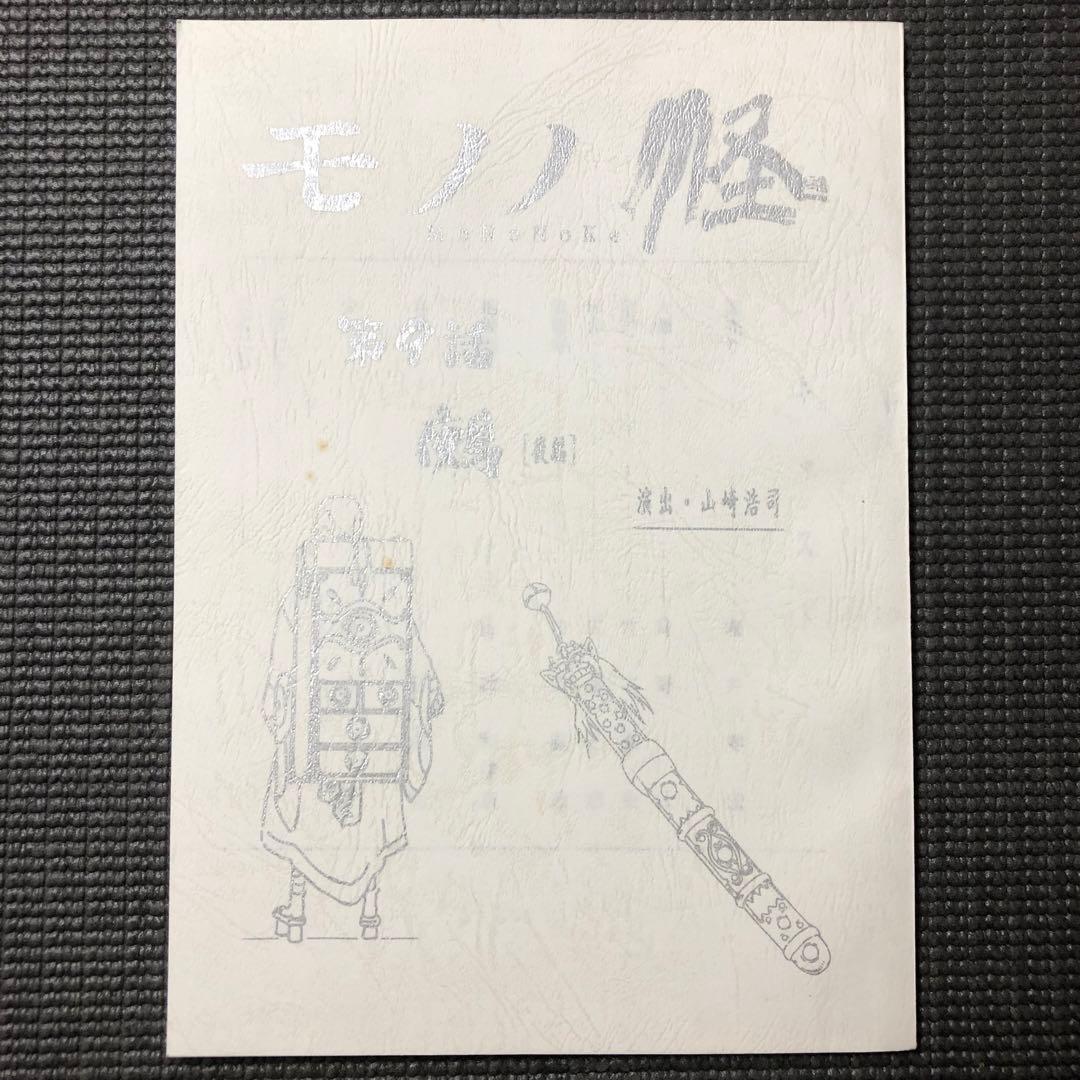 モノノ怪
MoNoNoKe
第9話
鵺 [後編]
演出・山崎浩司